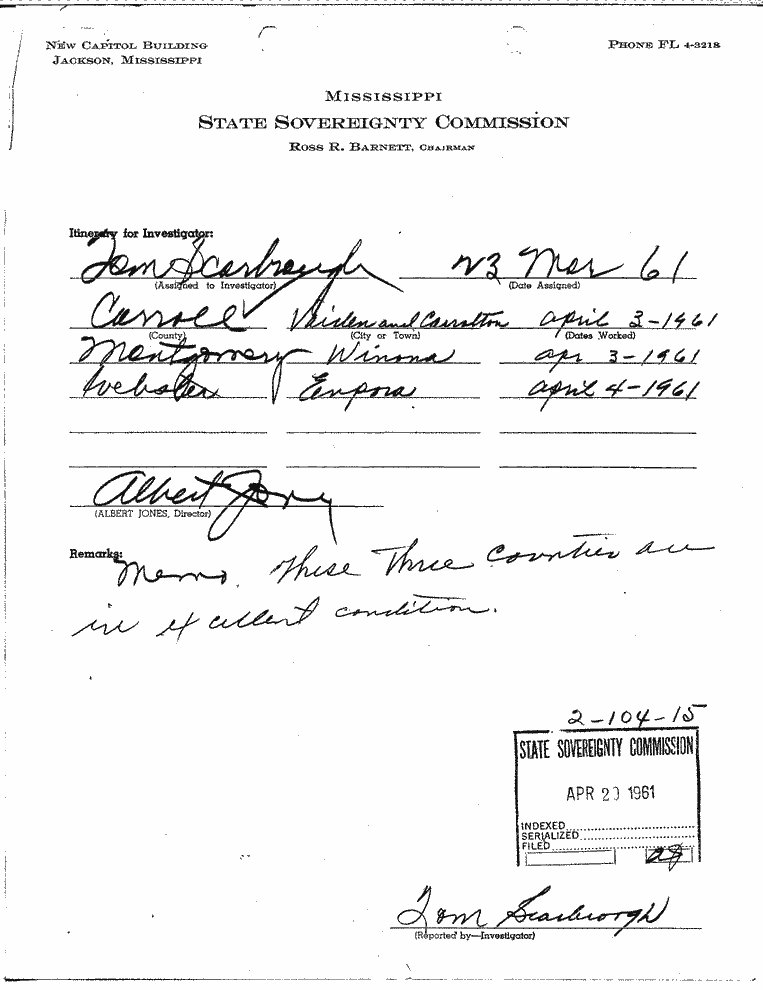 NEW CAPITOL BUILDING
JACKSON, MISSISSIPPI
PHONE FL 4-3218
MISSISSIPPI
STATE SOVEREIGNTY COMMISSION
ROSS R. BARNETT, CHAIRMAN
Itinerary for Investigator:
Tom Scarbrough 23 Mar 61
(Assigned to Investigator) (Date Assigned)
Carroll Vaiden and Carrollton April 3-1961
(County) (City or Town) (Dates Worked)
Montgomery Winona Apr 3-1961
Webster Eupora April 4-1961
Albert Jones
(ALBERT JONES, Director)
Remarks:
Memo. These Three Counties are
in excellent condition.
2-104-15
STATE SOVEREIGNTY COMMISSION
APR 20 1961
INDEXED
SERIALIZED
FILED
Tom Scarbrough
(Reported by—Investigator)